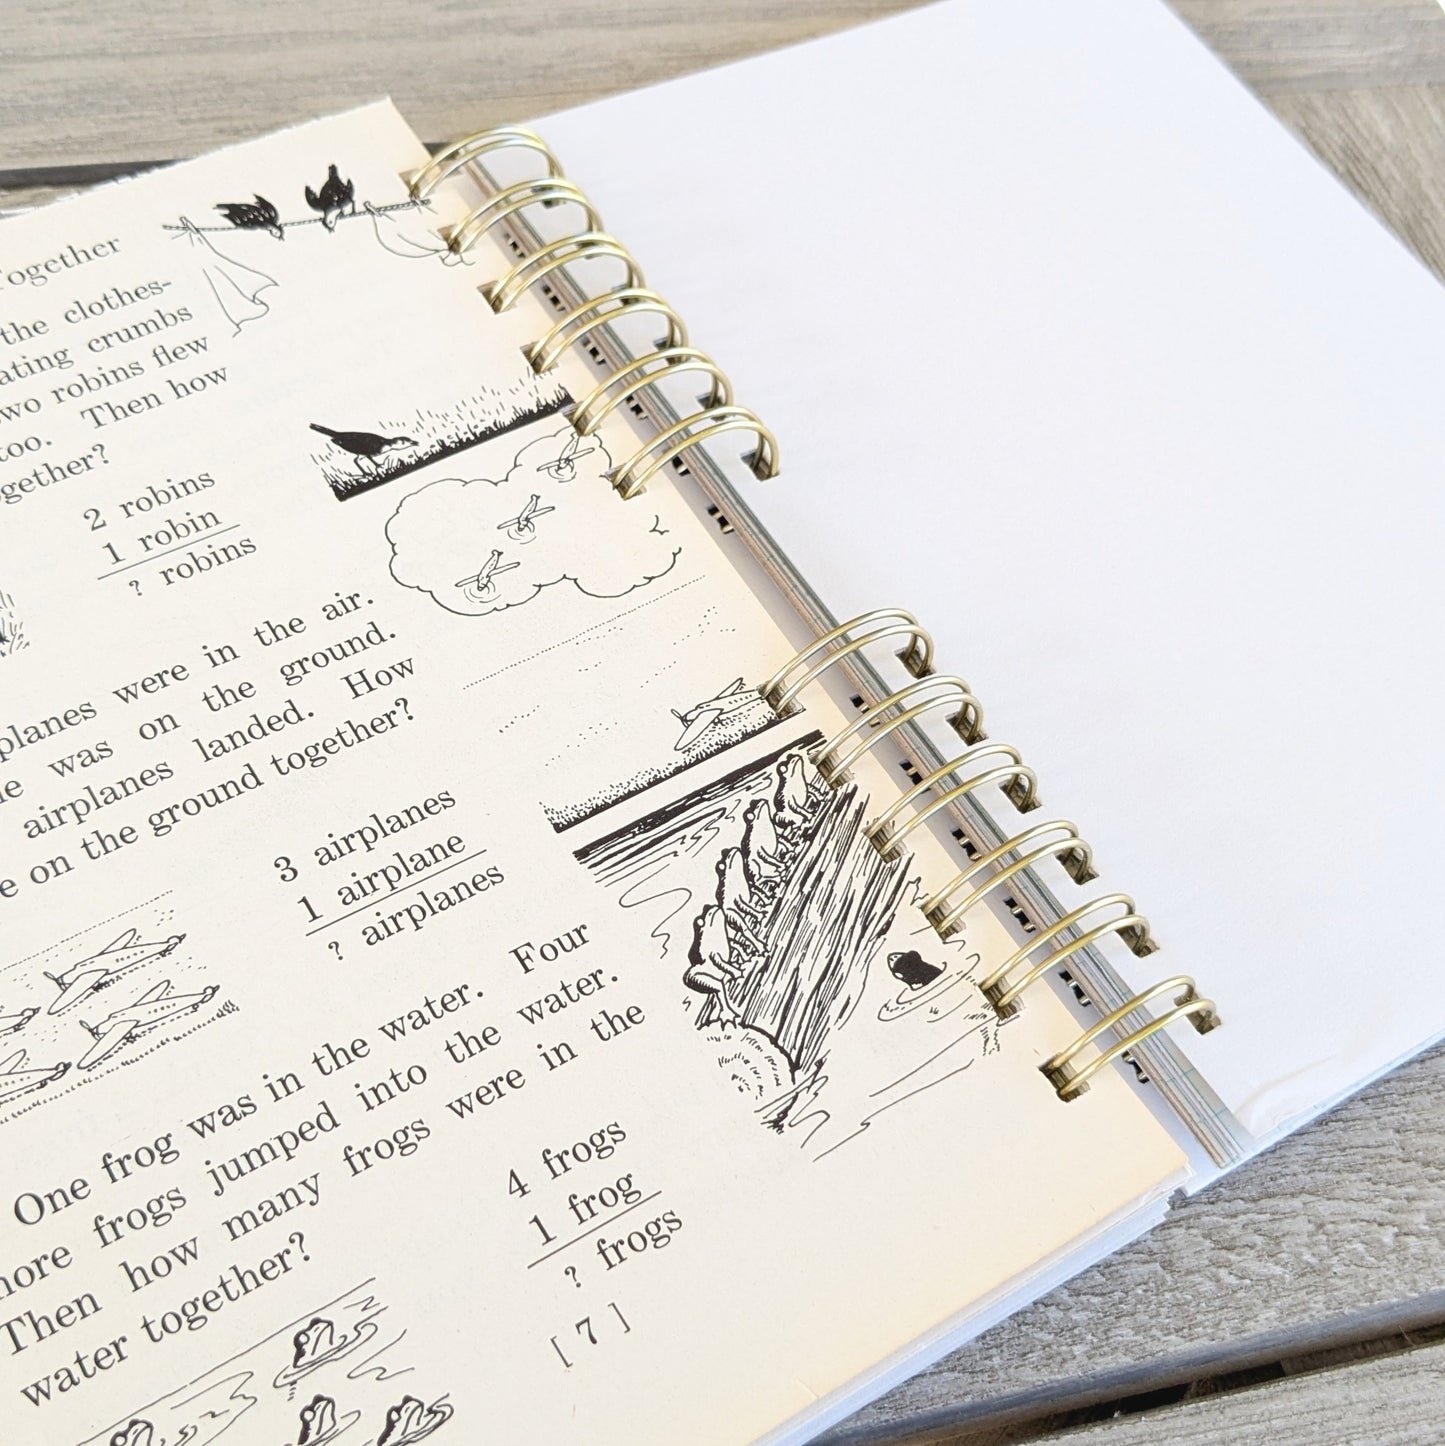 Together
the clothes-
crumbs
two robins flew
too. Then how
together?
2 robins
1 robin
? robins
were in the air.
was on the ground.
airplanes landed. How
on the ground together?
3 airplanes
1 airplane
? airplanes
One frog was in the water. Four
more frogs jumped into the water.
Then how many frogs were in the
water together?
4 frogs
1 frog
? frogs
[ 7 ]